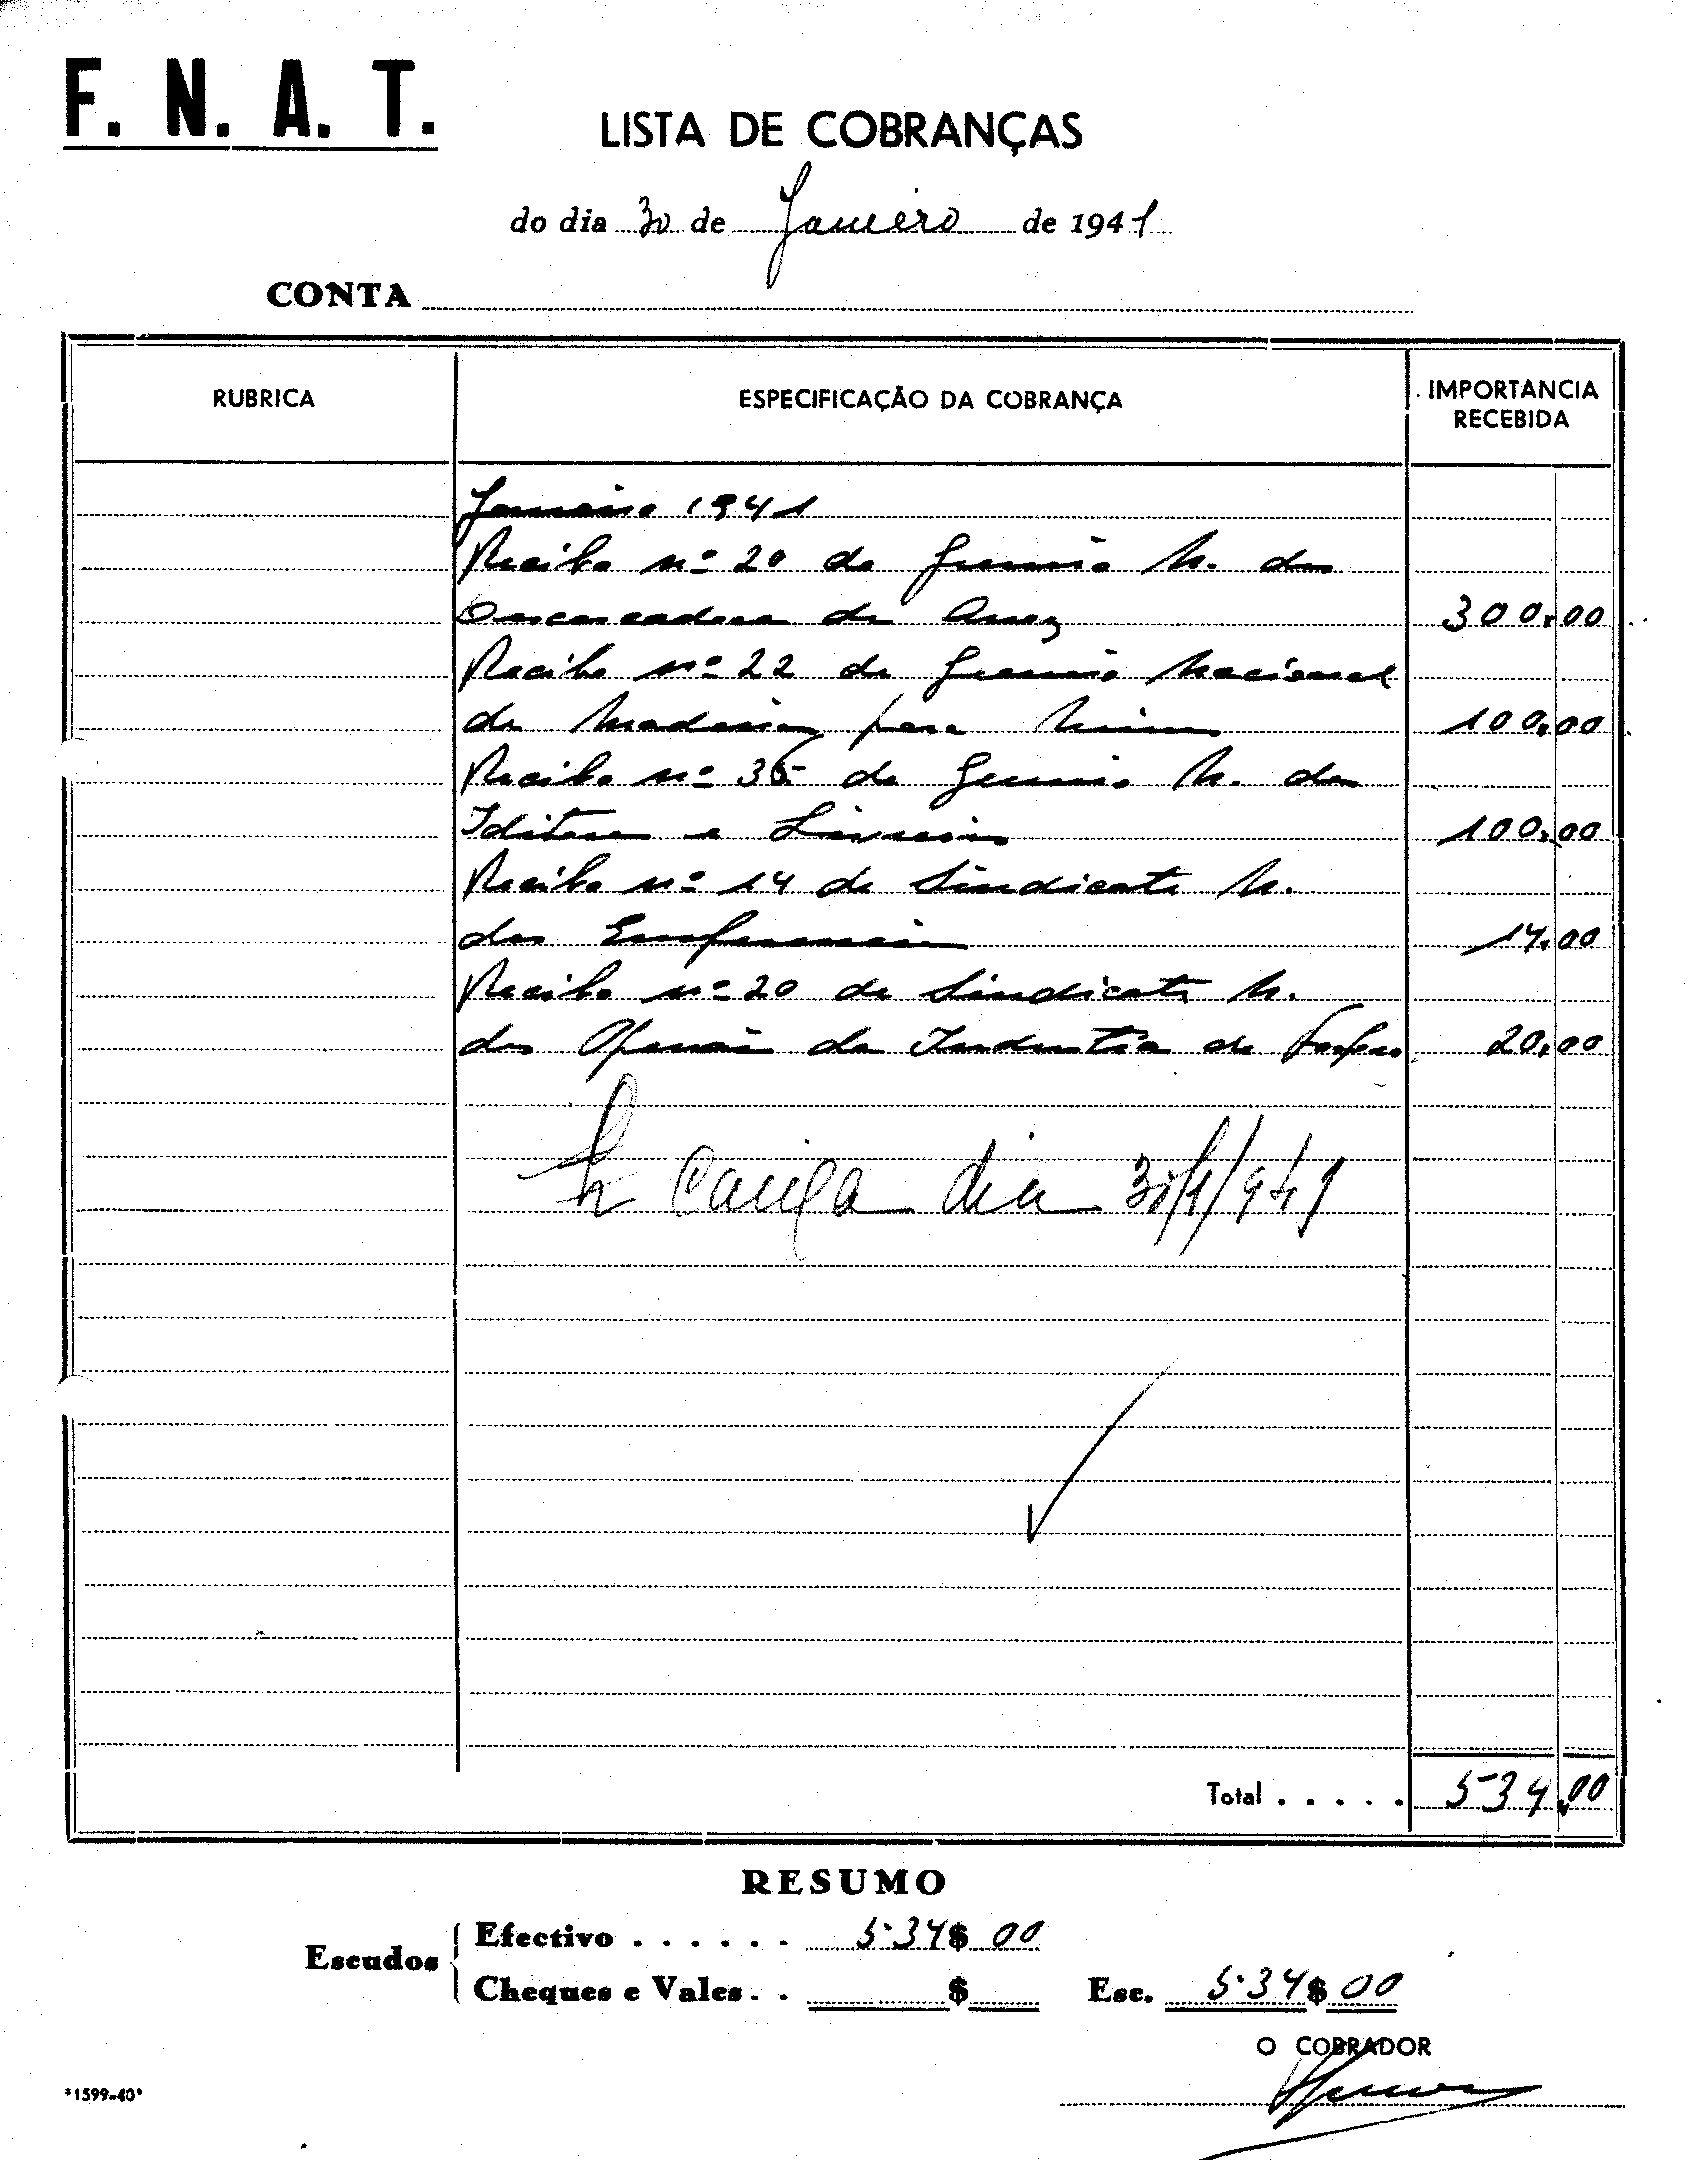 F. N. A. T.
LISTA DE COBRANÇAS
do dia 30 de Janeiro de 1941
CONTA
RUBRICA ESPECIFICAÇÃO DA COBRANÇA IMPORTANCIA RECEBIDA
Janeiro 1941
Recibo nº 20 do Gremio N. dos
Descascadores de Arroz 300,00
Recibo nº 22 do Gremio Nacional
de Madeiras para Minas 100,00
Recibo nº 36 do Gremio N. dos
Editores e Livreiros 100,00
Recibo nº 14 do Sindicato N.
dos Enfermeiros 14,00
Recibo nº 20 do Sindicato N.
dos Operarios da Industria de 20,00
dia 30/1/941
Total . . . . . 534,00
RESUMO
Escudos
Efectivo . . . . . . 534$00
Cheques e Vales . . $ Esc. 534$00
O COBRADOR
*1599-40*